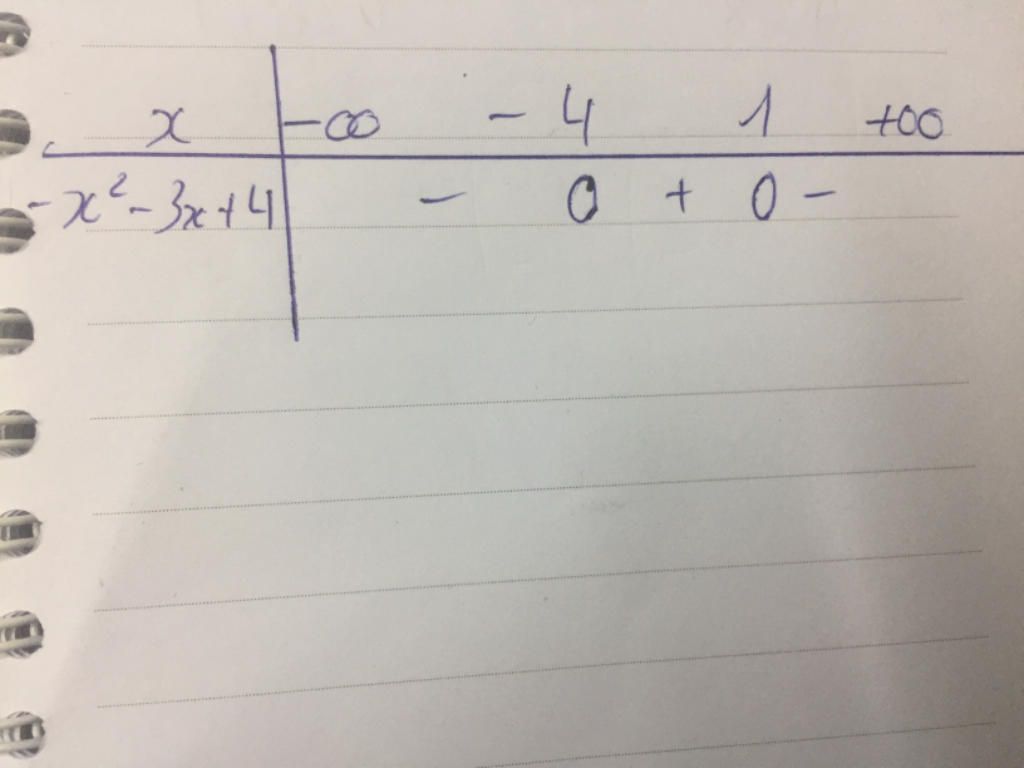 x -∞ - 4 1 +∞
-x² - 3x + 4 - 0 + 0 -